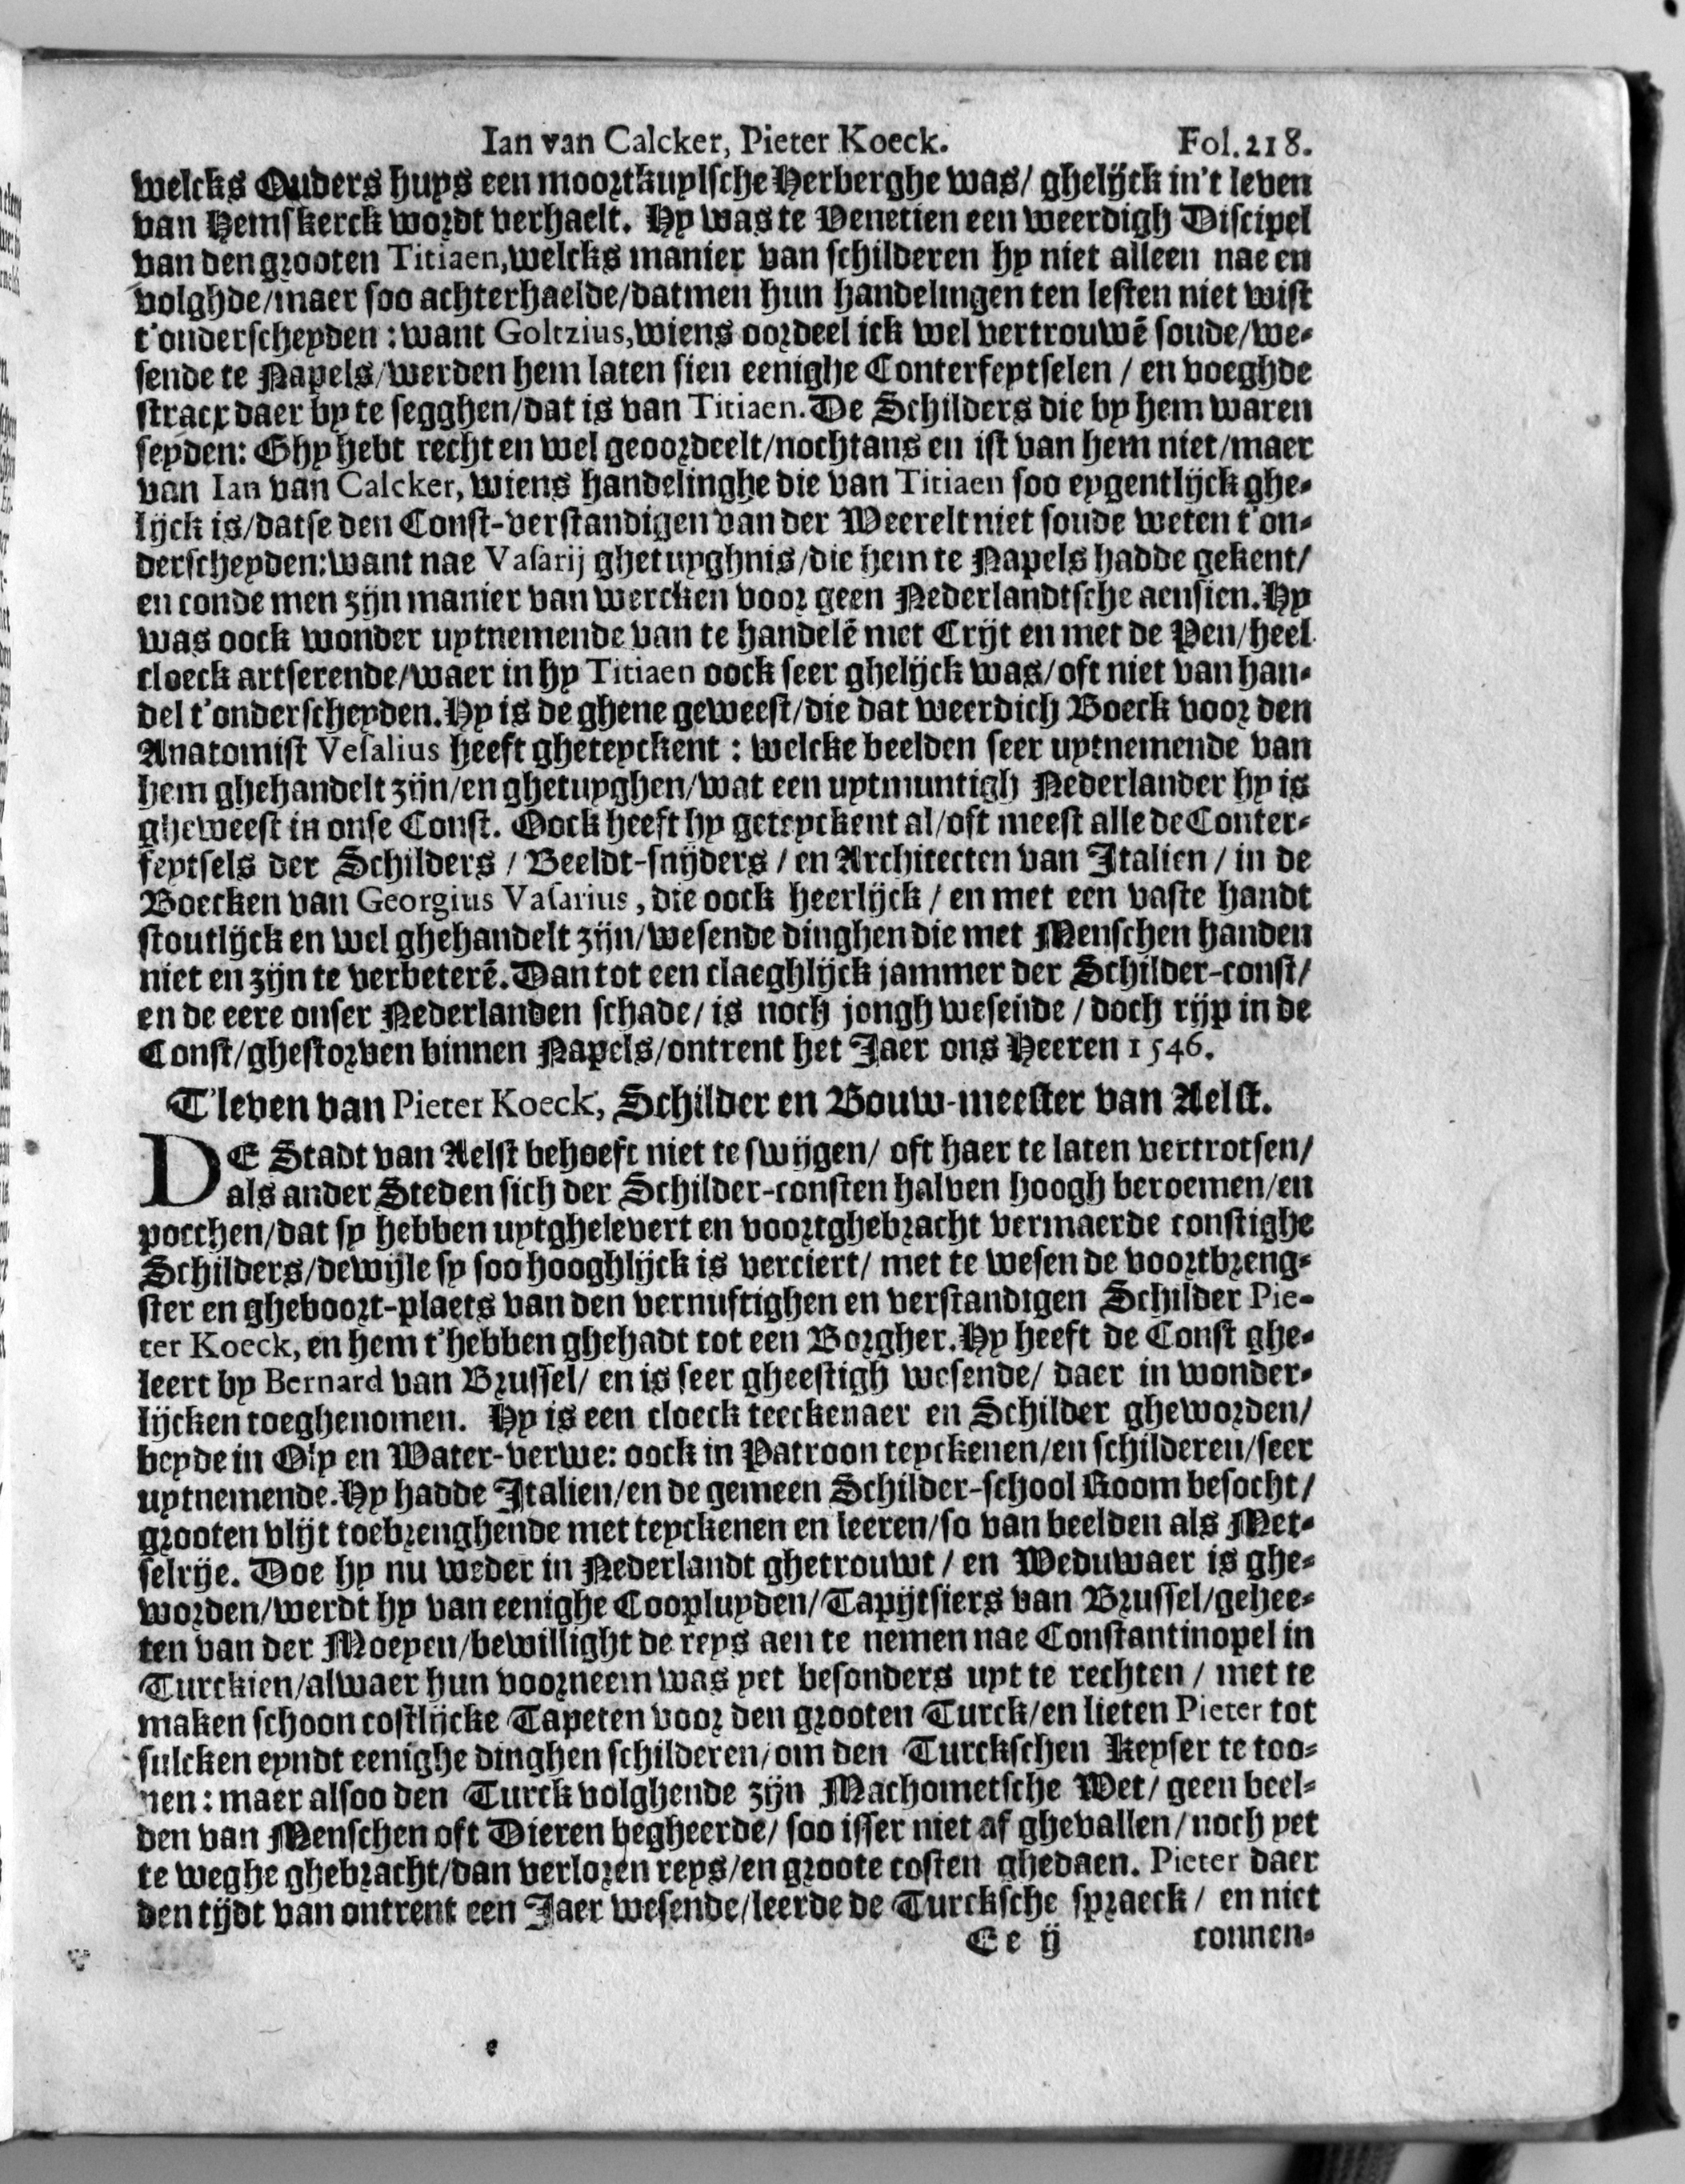 Ian van Calcker, Pieter Koeck. Fol. 218.
welcks Ouders huys een moortkuylsche Herberghe was/ ghelijck in't leven
van Hemskerck wordt verhaelt. Hy was te Venetien een weerdigh Discipel
van den grooten Titiaen, welcks manier van schilderen hy niet alleen nae en
volghde/maer soo achterhaelde/datmen hun handelingen ten lesten niet wist
t'onderscheyden: want Goltzius, wiens oordeel ick wel vertrouwē soude/we-
sende te Napels/werden hem laten sien eenighe Conterfeytselen / en voeghde
stracx daer by te segghen/dat is van Titiaen. De Schilders die by hem waren
seyden: Ghy hebt recht en wel geoordeelt/nochtans en ist van hem niet/maer
van Ian van Calcker, wiens handelinghe die van Titiaen soo eygentlijck ghe-
lijck is/datse den Const-verstandigen van der Weerelt niet soude weten t'on-
derscheyden: want nae Vasarij ghetuyghnis/die hem te Napels hadde gekent/
en conde men zijn manier van wercken voor geen Nederlandtsche aensien. Hy
was oock wonder uytnemende van te handelē met Crijt en met de Pen/heel
cloeck artserende/waer in hy Titiaen oock seer ghelijck was/oft niet van han-
del t'onderscheyden. Hy is de ghene geweest/die dat weerdich Boeck voor den
Anatomist Vesalius heeft gheteyckent: welcke beelden seer uytnemende van
hem ghehandelt zijn/en ghetuyghen/wat een uytmuntigh Nederlander hy is
gheweest in onse Const. Oock heeft hy geteyckent al/oft meest alle de Conter-
feytsels der Schilders / Beeldt-snijders / en Architecten van Italien / in de
Boecken van Georgius Vasarius, die oock heerlijck / en met een vaste handt
stoutlijck en wel ghehandelt zijn/wesende dinghen die met Menschen handen
niet en zijn te verbeterē. Dan tot een claeghlijck jammer der Schilder-const/
en de eere onser Nederlanden schade/ is noch jongh wesende / doch rijp in de
Const/ghestorven binnen Napels/ontrent het Jaer ons Heeren 1546.
T'leven van Pieter Koeck, Schilder en Bouw-meester van Aelst.
DE Stadt van Aelst behoeft niet te swijgen/ oft haer te laten vertrotsen/
als ander Steden sich der Schilder-consten halven hoogh beroemen/en
pocchen/dat sy hebben uytghelevert en voortghebracht vermaerde constighe
Schilders/dewijle sy soo hooghlijck is verciert/ met te wesen de voortbreng-
ster en gheboort-plaets van den vernuftighen en verstandigen Schilder Pie-
ter Koeck, en hem t'hebben ghehadt tot een Borgher. Hy heeft de Const ghe-
leert by Bernard van Brussel/ en is seer gheestigh wesende/ daer in wonder-
lijcken toeghenomen. Hy is een cloeck teeckenaer en Schilder gheworden/
beyde in Oly en Water-verwe: oock in Patroon teyckenen/en schilderen/seer
uytnemende. Hy hadde Italien/en de gemeen Schilder-school Room besocht/
grooten vlijt toebrenghende met teyckenen en leeren/so van beelden als Met-
selrije. Doe hy nu weder in Nederlandt ghetrouwt / en Weduwaer is ghe-
worden/werdt hy van eenighe Coopluyden/Tapijtsiers van Brussel/gehee-
ten van der Moeyen/bewillight de reys aen te nemen nae Constantinopel in
Turckien/alwaer hun voorneem was yet besonders uyt te rechten / met te
maken schoon costlijcke Tapeten voor den grooten Turck/en lieten Pieter tot
sulcken eyndt eenighe dinghen schilderen/om den Turckschen Keyser te too-
nen: maer alsoo den Turck volghende zijn Machometsche Wet/ geen beel-
den van Menschen oft Dieren begheerde/ soo isser niet af ghevallen/noch yet
te weghe ghebracht/dan verloren reys/en groote costen ghedaen. Pieter daer
den tijdt van ontrent een Jaer wesende/leerde de Turcksche spraeck / en niet
Ee ij connen-